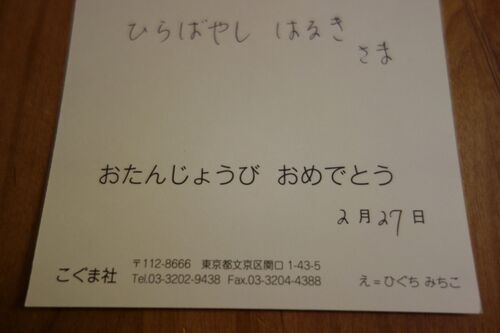 ひらばやし はるき
さま
おたんじょうび おめでとう
2月27日
こぐま社
〒112-8666 東京都文京区関口 1-43-5
Tel.03-3202-9438 Fax.03-3204-4388
え=ひぐち みちこ